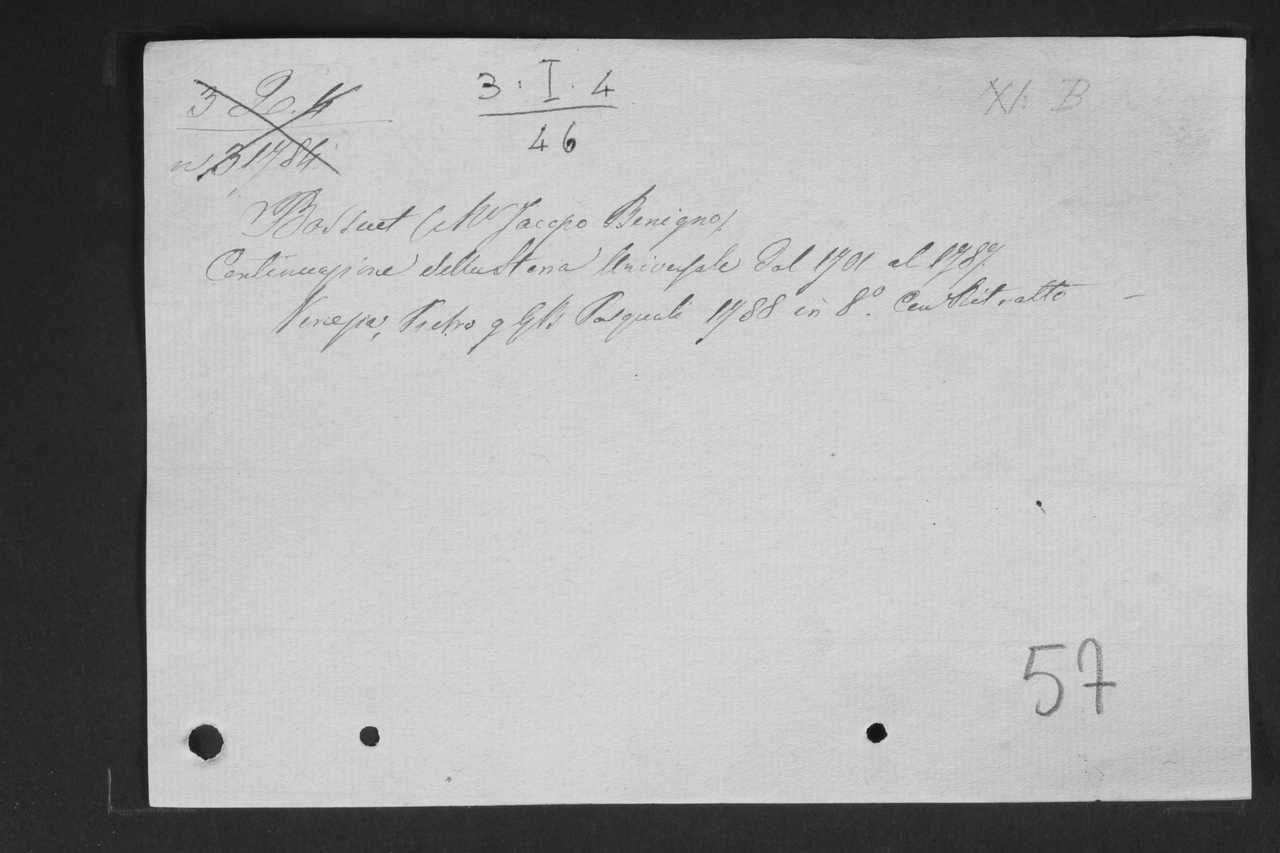 3 Q. 4
n. 31784
3 · I · 4
46
XI. B
Bossuet (Mr Jacopo Benigno)
Continuazione della Storia Universale dal 1701 al 1787
Venezia, Pietro q GB Pasquali 1788 in 8º. Con Ritratto —
57